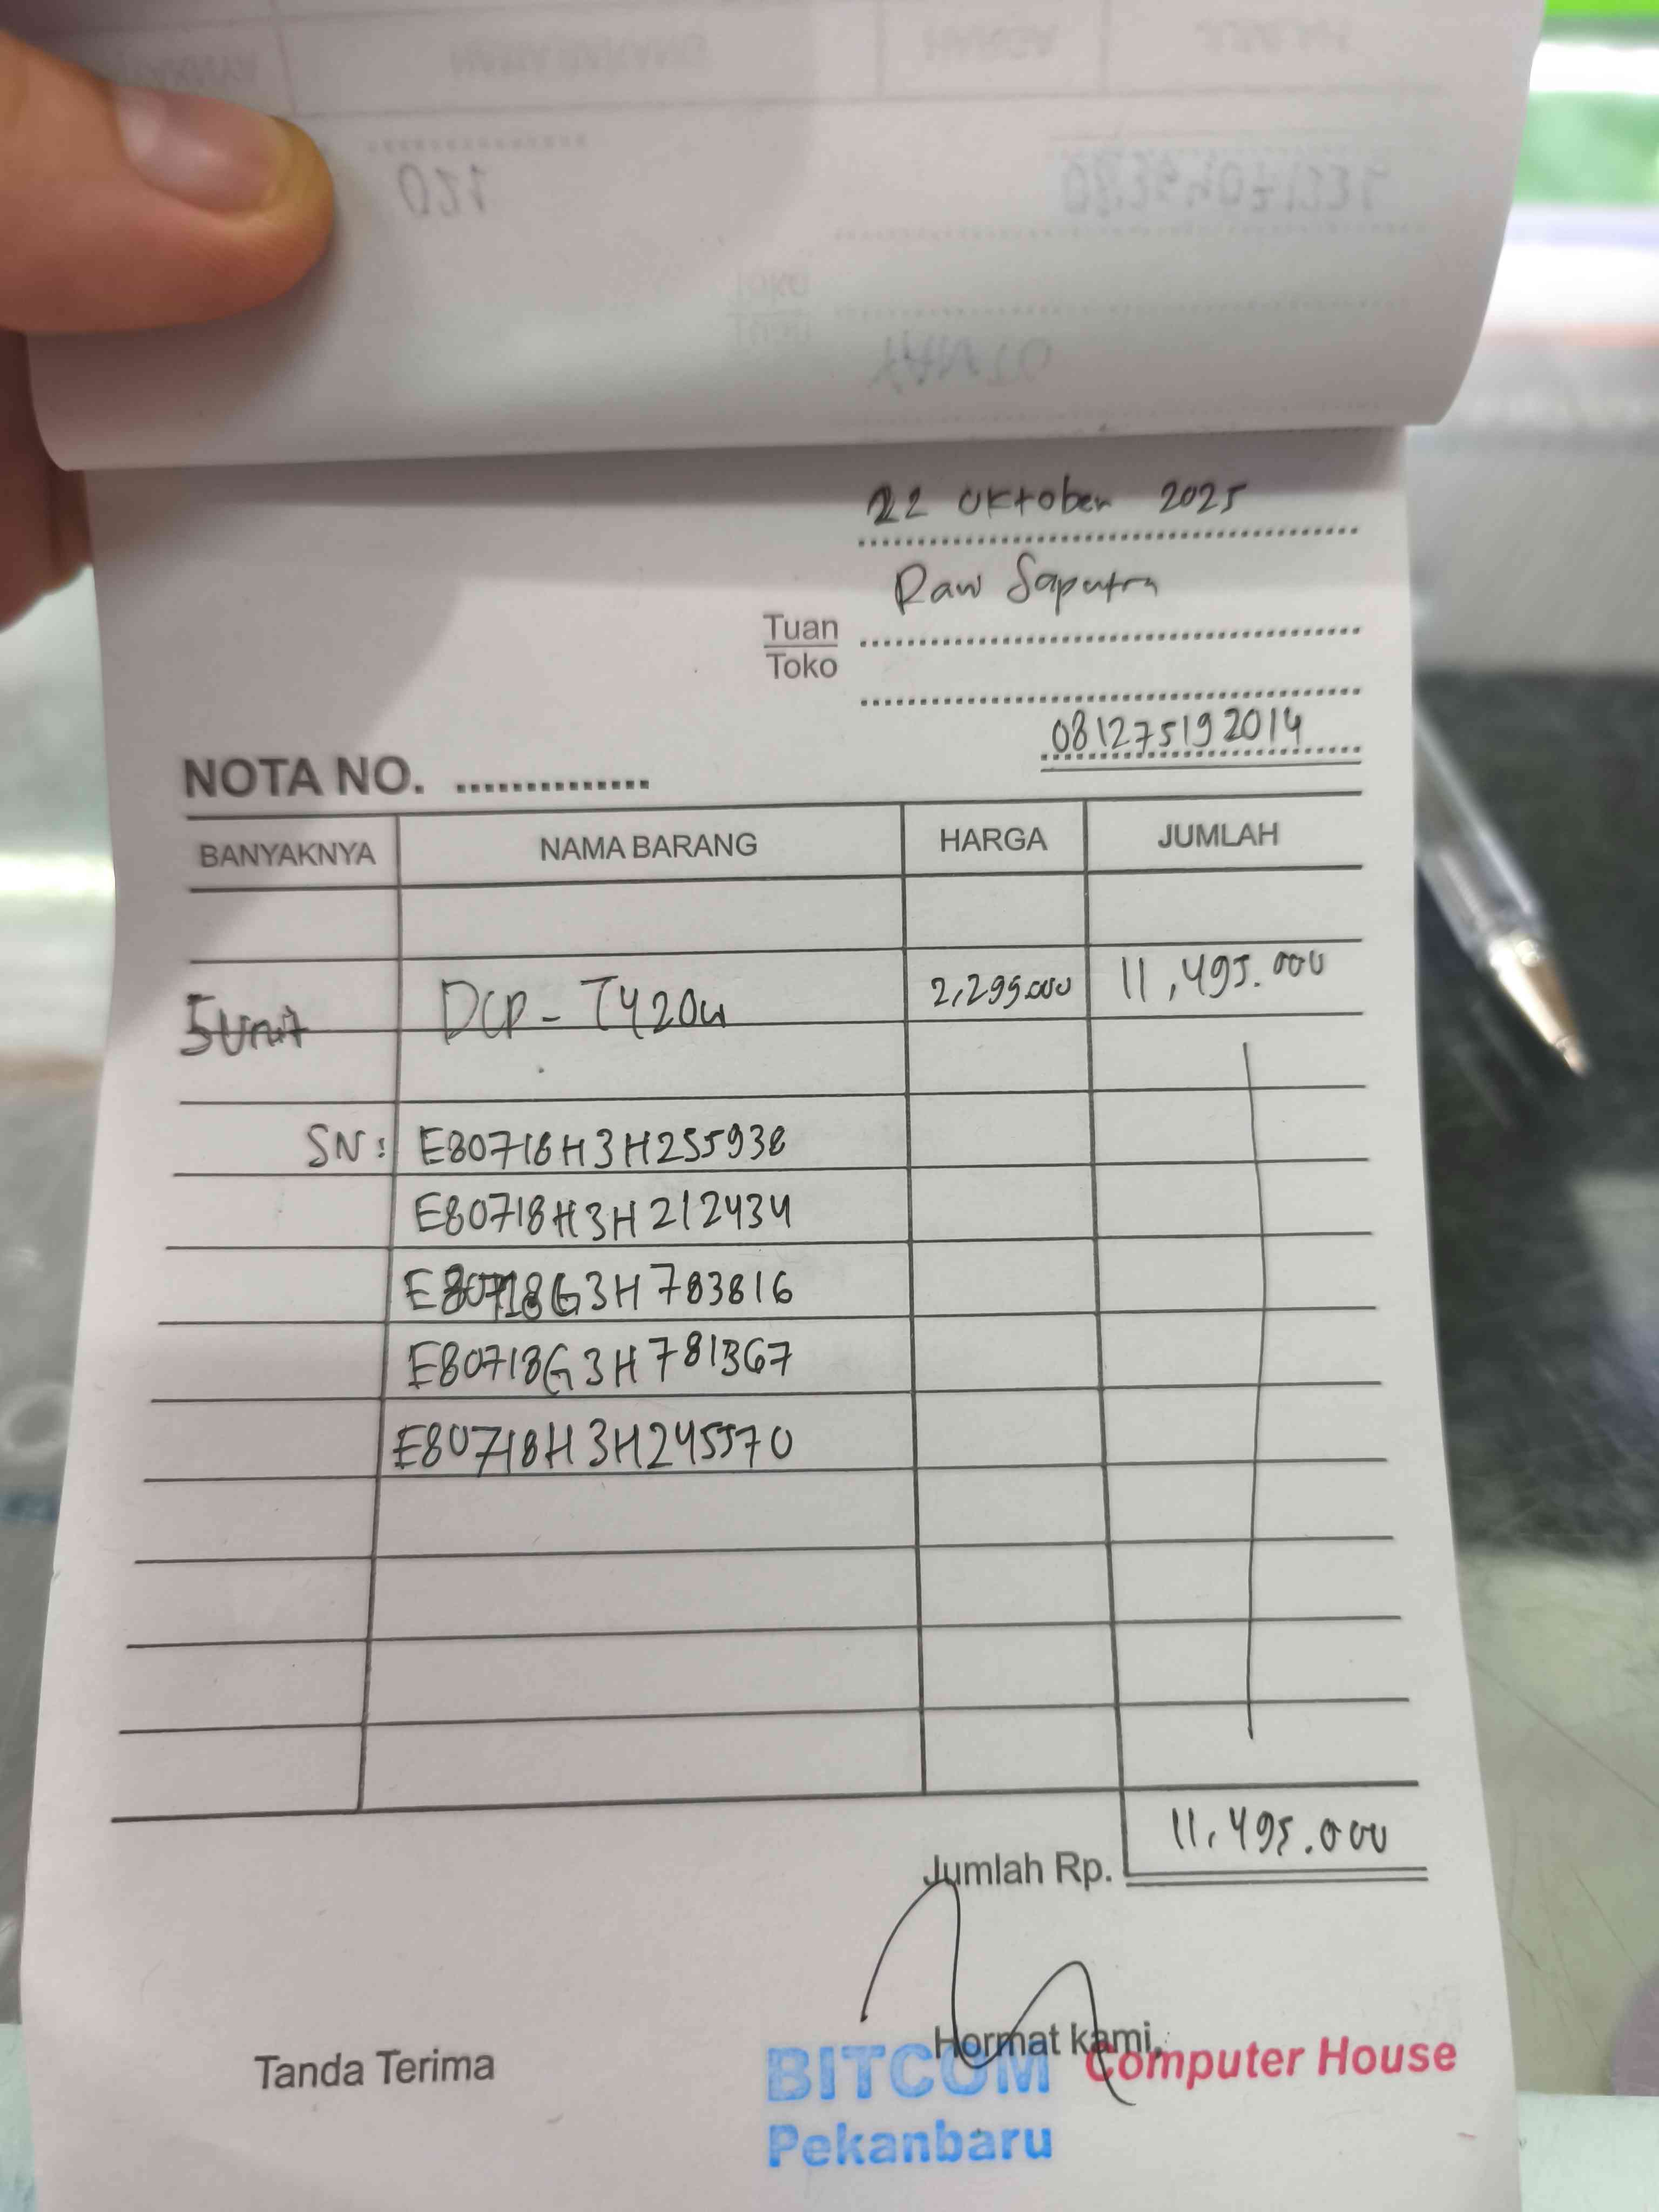 22 Oktober 2025
Rawi Saputra
Tuan
Toko
081275192014
NOTA NO. ..............
BANYAKNYA NAMA BARANG HARGA JUMLAH
5 Unit DCP - T420W 2,299.000 11,495.000
SN: E80718H3H255938
E80718H3H212434
E80718G3H783816
E80718G3H781367
E80718H3H245570
Jumlah Rp. 11,495.000
Tanda Terima Hormat kami,
BITCOM Computer House
Pekanbaru